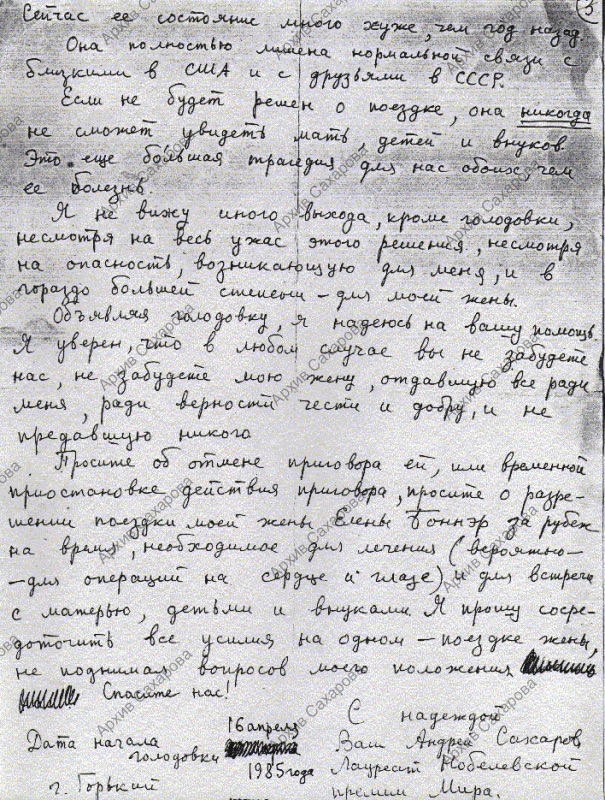 3
Сейчас ее состояние много хуже, чем год назад
Она полностью лишена нормальной связи с
близкими в США и с друзьями в СССР.
Если не будет решен о поездке, она никогда
не сможет увидеть мать, детей и внуков
Это еще бо́льшая трагедия для нас обоих, чем
ее болезнь.
Я не вижу иного выхода, кроме голодовки,
несмотря на весь ужас этого решения, несмотря
на опасность, возникающую для меня, и в
гораздо большей степени – для моей жены.
Объявляя голодовку, я надеюсь на вашу помощь
Я уверен, что в любом случае вы не забудете
нас, не забудете мою жену, отдавшую все ради
меня, ради верности чести и добру, и не
предавшую никого
Просите об отмене приговора ей, или временной
приостановке действия приговора, просите о разре-
шении поездки моей жены Елены Боннэр за рубеж
на время, необходимое для лечения (вероятно –
– для операций на сердце и глазе) и для встречи
с матерью, детьми и внуками Я прошу сосре-
доточить все усилия на одном – поездке жены,
не поднимая вопросов моего положения
Спасите нас!
С надеждой
Ваш Андрей Сахаров,
Лауреат Нобелевской
премии Мира.
Дата начала
голодовки
16 апреля
1985 года
г. Горький
Архив Сахарова